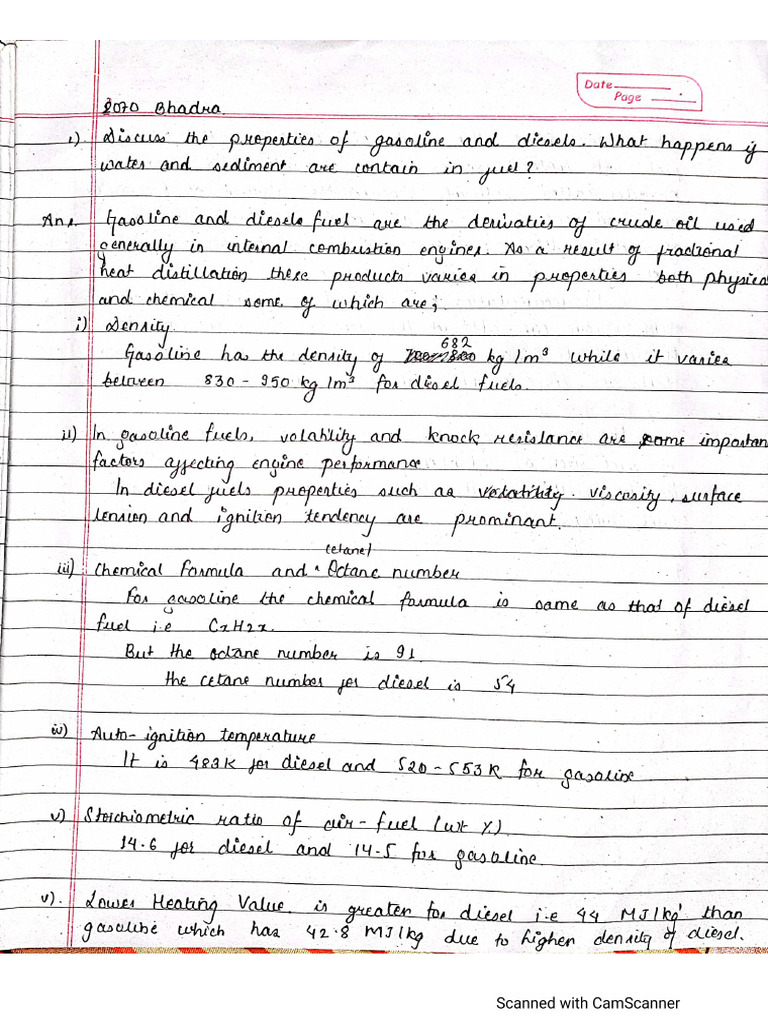 Date
Page
2070 Bhadra
1) Discuss the properties of gasoline and diesels. What happens if
water and sediment are contain in fuel?
Ans. Gasoline and diesels fuel are the derivaties of crude oil used
generally in internal combustion engines. As a result of fractional
heat distillation these products varies in properties both physical
and chemical some of which are;
i) Density
682
Gasoline has the density of kg/m³ while it varies
between 830-950 kg/m³ for diesel fuels.
ii) In gasoline fuels, volatility and knock resistance are some important
factors affecting engine performance
In diesel fuels properties such as volatility. viscosity, surface
tension and ignition tendency are prominant.
(cetane)
iii) Chemical formula and Octane number
For gasoline the chemical formula is same as that of diesel
fuel i.e CxH2x.
But the octane number is 91
the cetane number for diesel is 54
iv) Auto-ignition temperature
It is 483K for diesel and 520-553K for gasoline
v) Stoichiometric ratio of air-fuel (wt %)
14.6 for diesel and 14.5 for gasoline
v). Lower Heating Value is greater for diesel i.e 44 MJ/kg than
gasoline which has 42.8 MJ/kg due to higher density of diesel.
Scanned with CamScanner